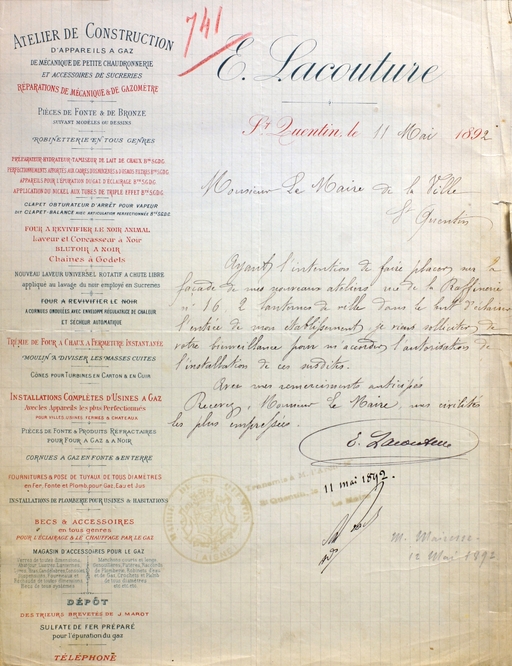 741
ATELIER DE CONSTRUCTION
D'APPAREILS A GAZ
DE MÉCANIQUE DE PETITE CHAUDRONNERIE
ET ACCESSOIRES DE SUCRERIES
RÉPARATIONS DE MÉCANIQUE & DE GAZOMÈTRE
PIÈCES DE FONTE & DE BRONZE
SUIVANT MODÈLES OU DESSINS
ROBINETTERIE EN TOUS GENRES
PRÉPARATEUR-HYDRATEUR-TAMISEUR DE LAIT DE CHAUX Btés SGDG.
APPAREILS POUR L'ÉPURATION DU GAZ D'ÉCLAIRAGE Btés SGDG.
APPLICATION DU NICKEL AUX TUBES DE TRIPLE EFFET Btés SGDG.
CLAPET OBTURATEUR D'ARRÊT POUR VAPEUR
DIT CLAPET-BALANCE AVEC ARTICULATION PERFECTIONNÉE Bté SGDG
FOUR A REVIVIFIER LE NOIR ANIMAL
Laveur et Concasseur à Noir
BLUTOIR A NOIR
Chaines à Godets
NOUVEAU LAVEUR UNIVERSEL ROTATIF A CHUTE LIBRE
appliqué au lavage du noir employé en Sucreries
FOUR A REVIVIFIER LE NOIR
A CORNUES ONDULÉES AVEC ENVELOPPE RÉGULATRICE DE CHALEUR
ET SÉCHEUR AUTOMATIQUE
TRÉMIE DE FOUR A CHAUX A FERMETURE INSTANTANÉE
MOULIN A DIVISER LES MASSES CUITES
CÔNES POUR TURBINES EN CARTON & EN CUIR
INSTALLATIONS COMPLÈTES D'USINES A GAZ
Avec les Appareils les plus Perfectionnés
POUR VILLES, USINES, FERMES & CHATEAUX
PIÈCES DE FONTE & PRODUITS RÉFRACTAIRES
POUR FOUR A GAZ & A NOIR
CORNUES A GAZ EN FONTE & EN TERRE
FOURNITURES & POSE DE TUYAUX DE TOUS DIAMÈTRES
en Fer, Fonte et Plomb, pour Gaz, Eau et Jus
INSTALLATIONS DE PLOMBERIE POUR USINES & HABITATIONS
BECS & ACCESSOIRES
en tous genres
POUR L'ÉCLAIRAGE & LE CHAUFFAGE PAR LE GAZ
MAGASIN D'ACCESSOIRES POUR LE GAZ
DÉPÔT
DES TRIEURS BREVETÉS DE J. MAROT
SULFATE DE FER PRÉPARÉ
pour l'épuration du gaz
TÉLÉPHONE
E. Lacouture
St Quentin, le 11 Mai 1892
Monsieur Le Maire de la Ville
St Quentin
Ayant l'intention de faire placer sur la
façade de mes nouveaux ateliers rue de la Raffinerie
n° 16 2 lanternes de ville dans le but d'éclairer
l'entrée de mon établissement je viens solliciter de
votre bienveillance pour m'accorder l'autorisation de
l'installation de ces susdites.
Avec mes remerciements anticipés
Recevez, Monsieur Le Maire, mes civilités
les plus empressées.
E. Lacouture
11 mai 1892.
12 Mai 1892